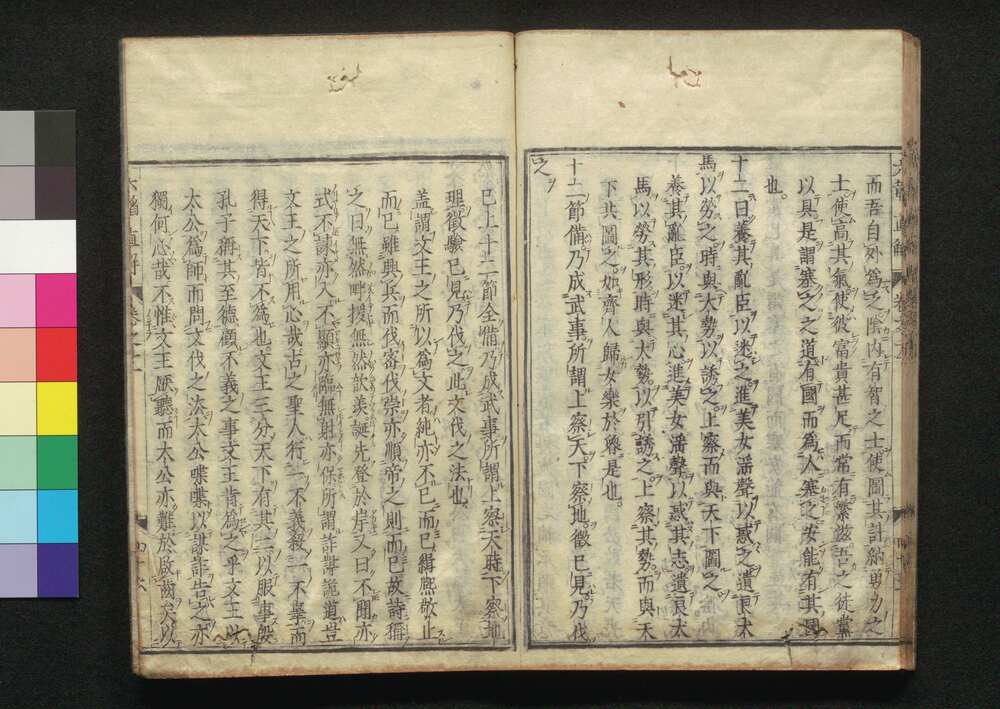 而吾自外爲之陰内有智之士使圖其計納勇力之
士使高其氣使彼富貴甚足而常有繁滋吾之徒黨
以具是謂塞之之道有國而爲人塞之安能有其國
也
十二曰養其亂臣以迷之進美女淫聲以惑之遺良犬
馬以勞之時與大勢以誘之上察而與天下圖之
養其亂臣以迷其心進美女淫聲以惑其志遺良犬
馬以勞其形時與大勢以引誘之上察其勢而與天
下共圖之如齊人歸女樂於魯是也
十二節備乃成武事所謂上察天下察地徵已見乃伐
之
已上十二節全備乃成武事所謂上察天時下察地
理徵驗已見乃伐之此文伐之法也
蓋謂文王之所以爲文者純亦不已而已緝熙敬止
而已雖興兵而伐密伐崇亦順帝之則而已故詩稱
之曰無然畔援無然歆羨誕先登於岸又曰不聞亦
式不諫亦入不顯亦臨無射亦保所謂詐謀詭道豈
文王之所用心哉古之聖人行一不義殺一不辜而
得天下皆不爲也文王三分天下有其二以服事殷
孔子稱其至德顧不義之事文王肯爲之乎文王以
太公爲師而問文伐之法太公喋喋以謀詐告之亦
獨何心哉不惟文王厭聽而太公亦難於啟齒矣以
六韜直解